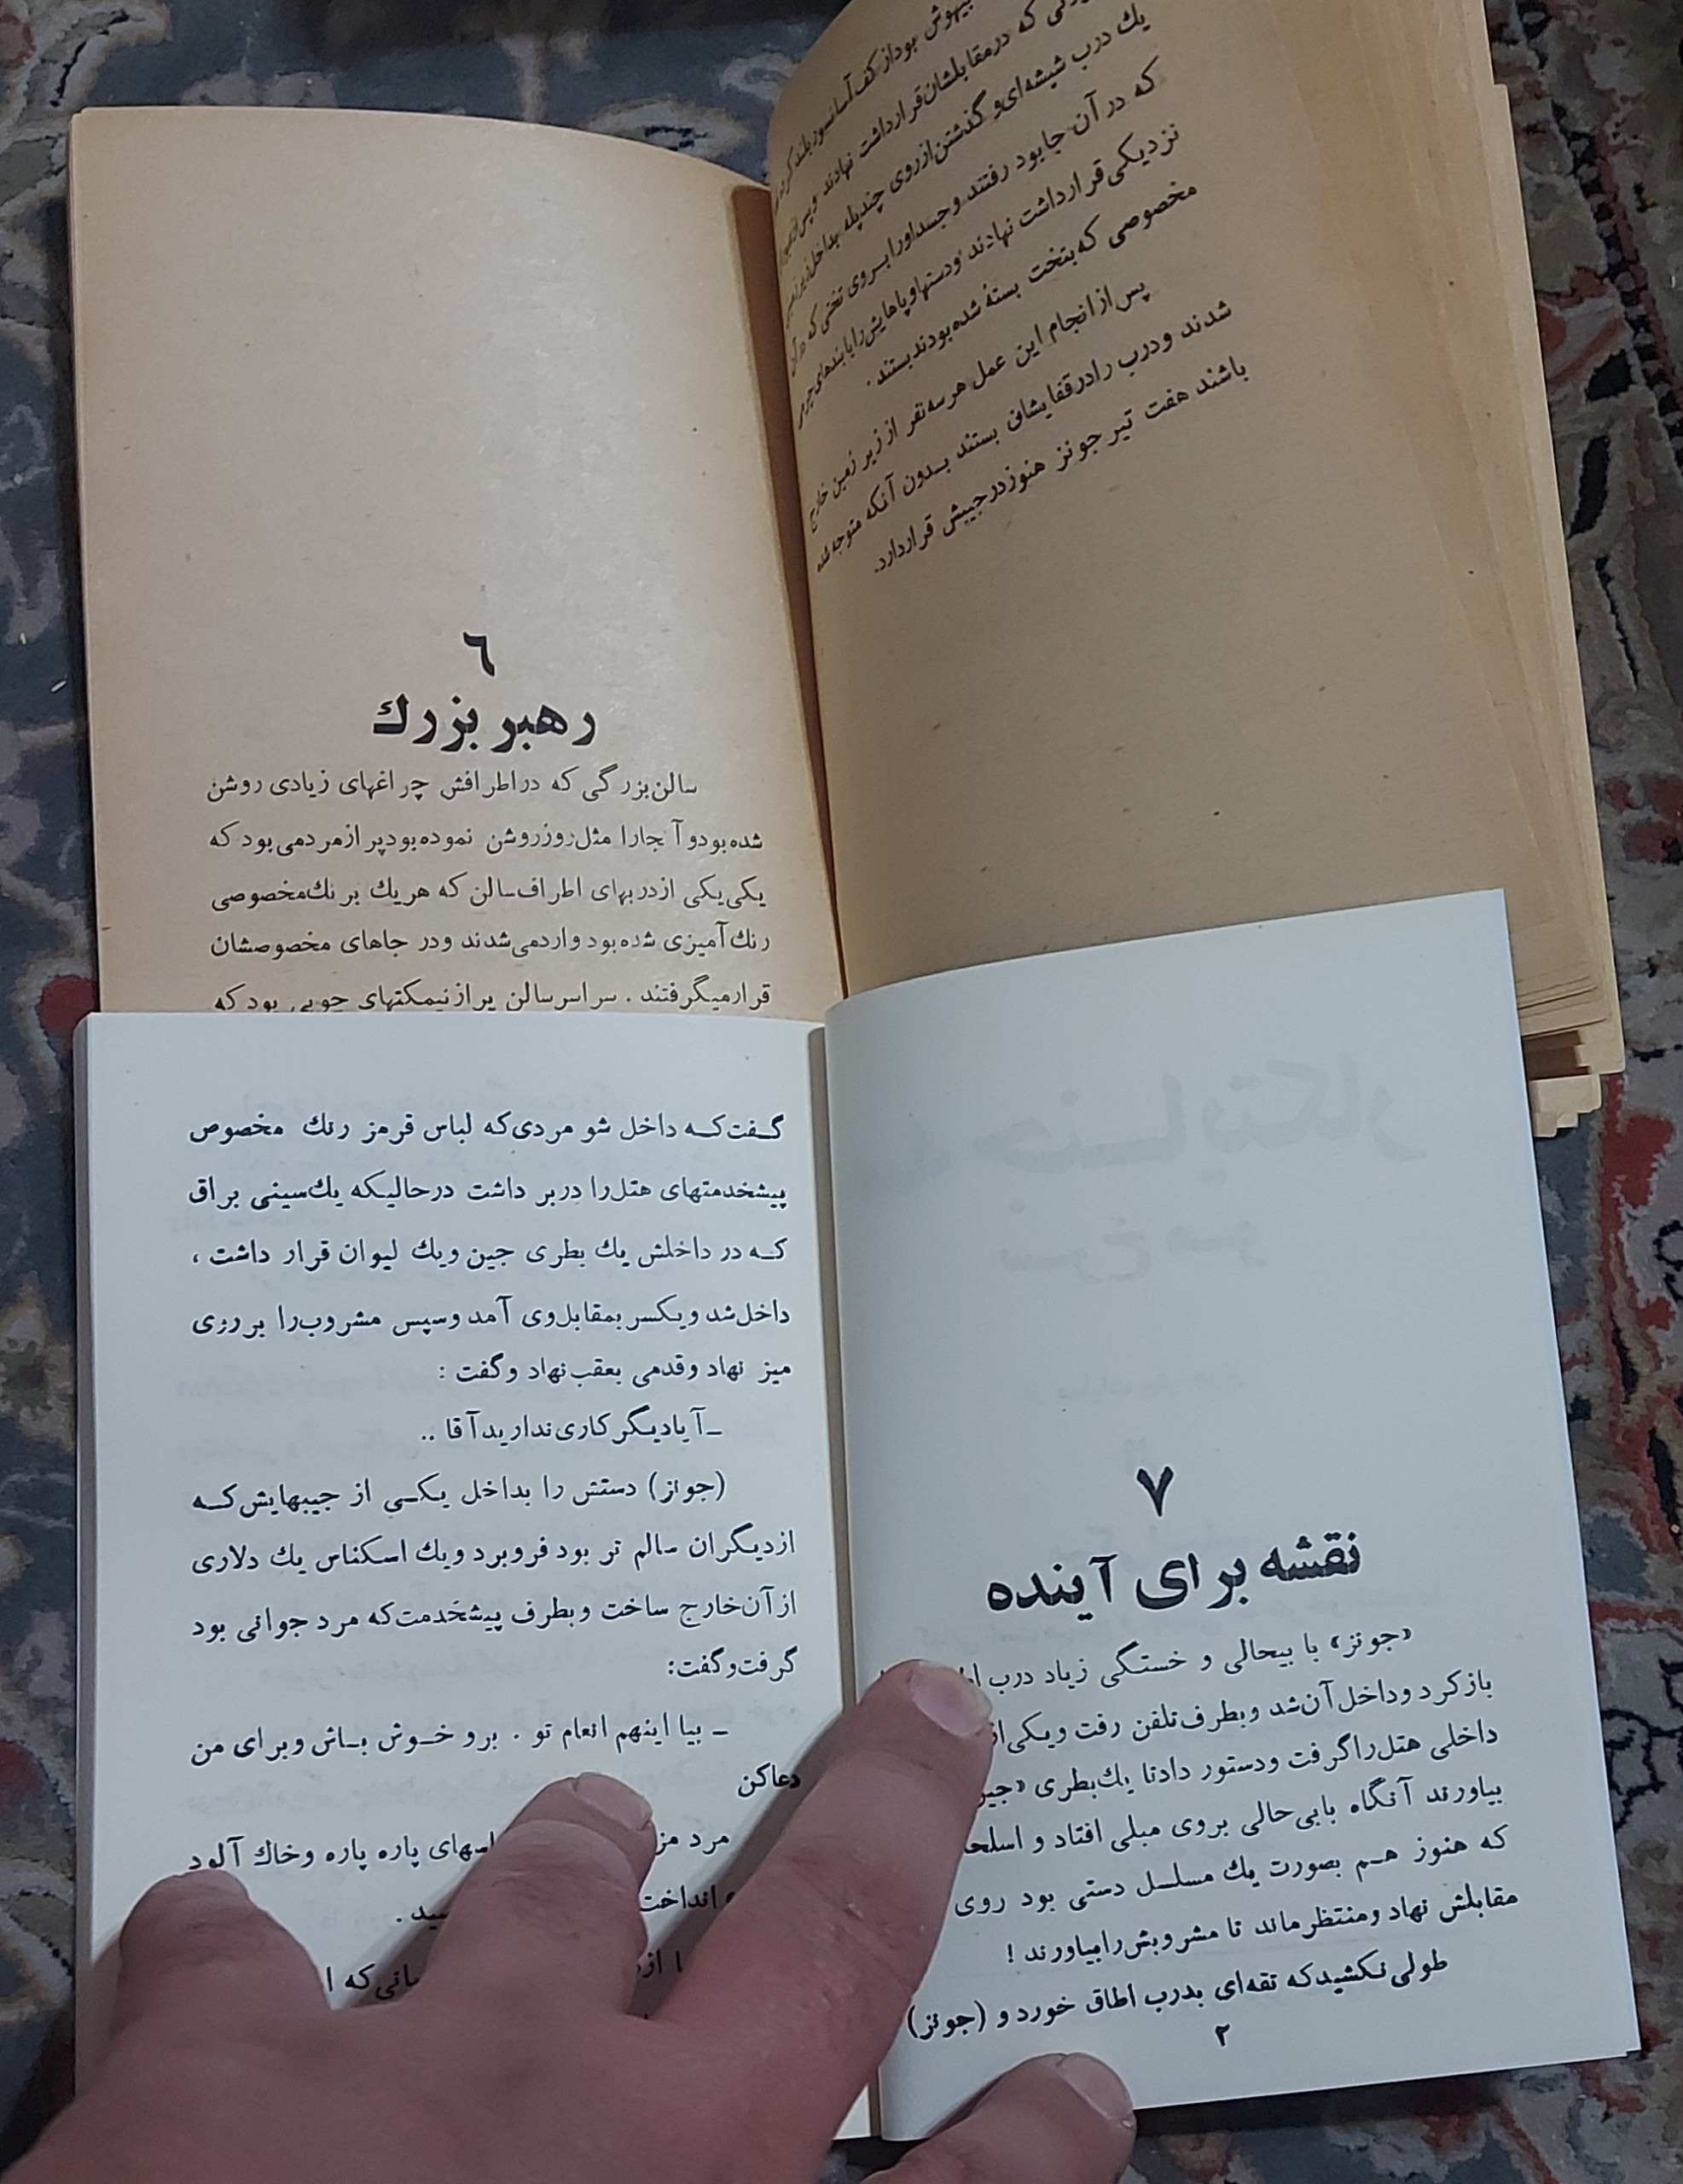 بیهوش بود از کف آسانسور بلند کردند
که درمقابلشان قرارداشت نهادند وپس از عبور
یك درب شیشه‌ای و گذشتن ازروی چند پله بداخل زیرزمین
که در آن جا بود رفتند و جسد اورا بـروی تختی که در آن
نزدیکی قرارداشت نهادند ودستها وپاهایش را با بندهای چرمی
مخصوصی که بتخت بسته شده بودند بستند .
پس از انجام این عمل هر سه نفر از زیر زمین خارج
شدند ودرب رادرقفایشان بستند بـدون آنکه متوجه شده
باشند هفت تیر جونز هنوز درجیبش قراردارد.
٦
رهبر بزرك
سالن بزرگی که دراطرافش چراغهای زیادی روشن
شده بودو آنجارا مثل روز روشن نموده بود پر از مردمی بود که
یکی یکی از دربهای اطراف سالن که هر یك برنك مخصوصی
رنك آمیزی شده بود واردمی‌شدند ودر جاهای مخصوصشان
قرارمیگرفتند . سراسر سالن پر از نیمکتهای چوبی بود که
۷
نقشه برای آینده
«جونز» با بیحالی و خستگی زیاد درب
بازکرد وداخل آن شد وبطرف تلفن رفت ویکی از
داخلی هتل را گرفت ودستور دادتا یك بطری «جین
بیاورند آنگاه بابی‌حالی بروی مبلی افتاد و
که هنوز هـم بصورت یك مسلسل دستی بود روی
مقابلش نهاد ومنتظر ماند تا مشروبش رابیاورند !
طولی نکشید که تقه‌ای بدرب اطاق خورد و (جونز)
۲
گـفت‌کـه داخل شو مردی‌که لباس قرمز رنك مخصوص
پیشخدمتهای هتل‌را دربر داشت درحالیکه یك سینی براق
کـه در داخلش یك بطری جین ویك لیوان قرار داشت ،
داخل شد ویکسر بمقابل وی آمد وسپس مشروب‌را برروی
میز نهاد وقدمی بعقب نهاد وگفت :
ـ آیادیگر کاری ندارید آقا ..
(جونز) دستش را بداخل یکـی از جیبهایش‌کـه
ازدیگران سالم تر بود فروبرد ویك اسکناس یك دلاری
از آن خارج ساخت وبطرف پیشخدمت‌که مرد جوانی بود
گرفت‌وگفت:
ـ بیا اینهم انعام تو . برو خـوش بـاش وبرای من
دعاکن
مرد پاره پاره وخاك آلود
انداخت